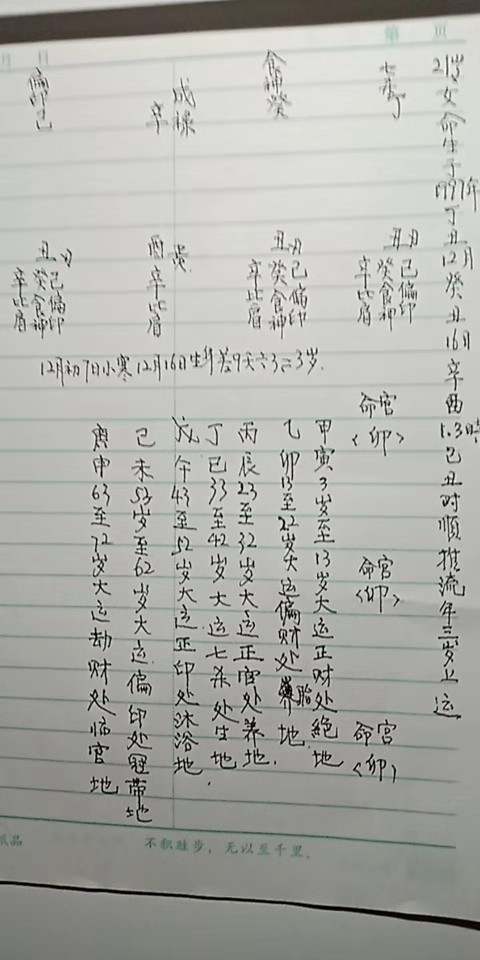 第 页
月 日
21岁女命生于1997年丁丑12月癸丑16日辛酉1.3時己丑时順推流年三岁上运
七杀丁
食神癸
辛
偏印己
己偏印
癸食神
辛比肩
己偏印
癸食神
辛比肩
酉
辛比肩
己偏印
癸食神
辛比肩
12月初7日小寒12月16日生年差9天÷3=3岁.
命宫<卯>
命宫<卯>
命宫<卯>
甲寅3岁至13岁大运正财处絶地
乙卯13至22岁大运偏财处胎地.
丙辰23至32岁大运正官处养地.
丁巳33至42岁大运七杀处生地.
戊午43至52岁大运正印处沐浴地
己未53岁至62岁大运偏印处冠带地
庚申63至72岁大运劫财处临官地
纸品
不积跬步，无以至千里.